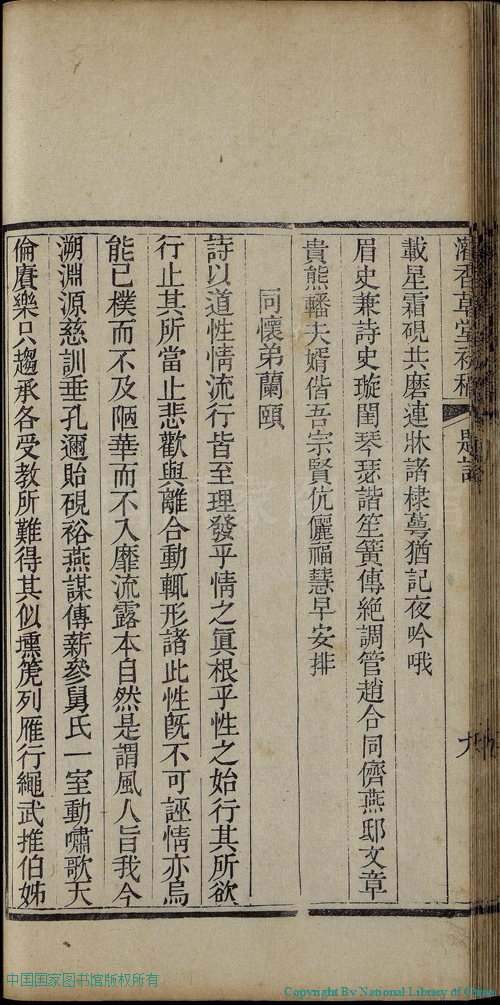 香草堂
題
載星霜硯共磨連牀諸棣萼猶記夜吟哦
眉史兼詩史璇閨琴瑟諧笙簧傳絶調管趙合同儕燕邸文章
貴熊轓夫婿偕吾宗賢伉儷福慧早安排
同懷弟蘭頤
詩以道性情流行皆至理發乎情之眞根乎性之始行其所欲
行止其所當止悲歡與離合動輒形諸此性旣不可誣情亦烏
能已樸而不及陋華而不入靡流露本自然是謂風人旨我今
溯淵源慈訓垂孔邇貽硯裕燕謀傳薪參舅氏一室動嘯歌天
倫賡樂只趨承各受教所難得其似壎箎列雁行繩武推伯姊
中国国家图书馆版权所有
Copyright By National Library of China